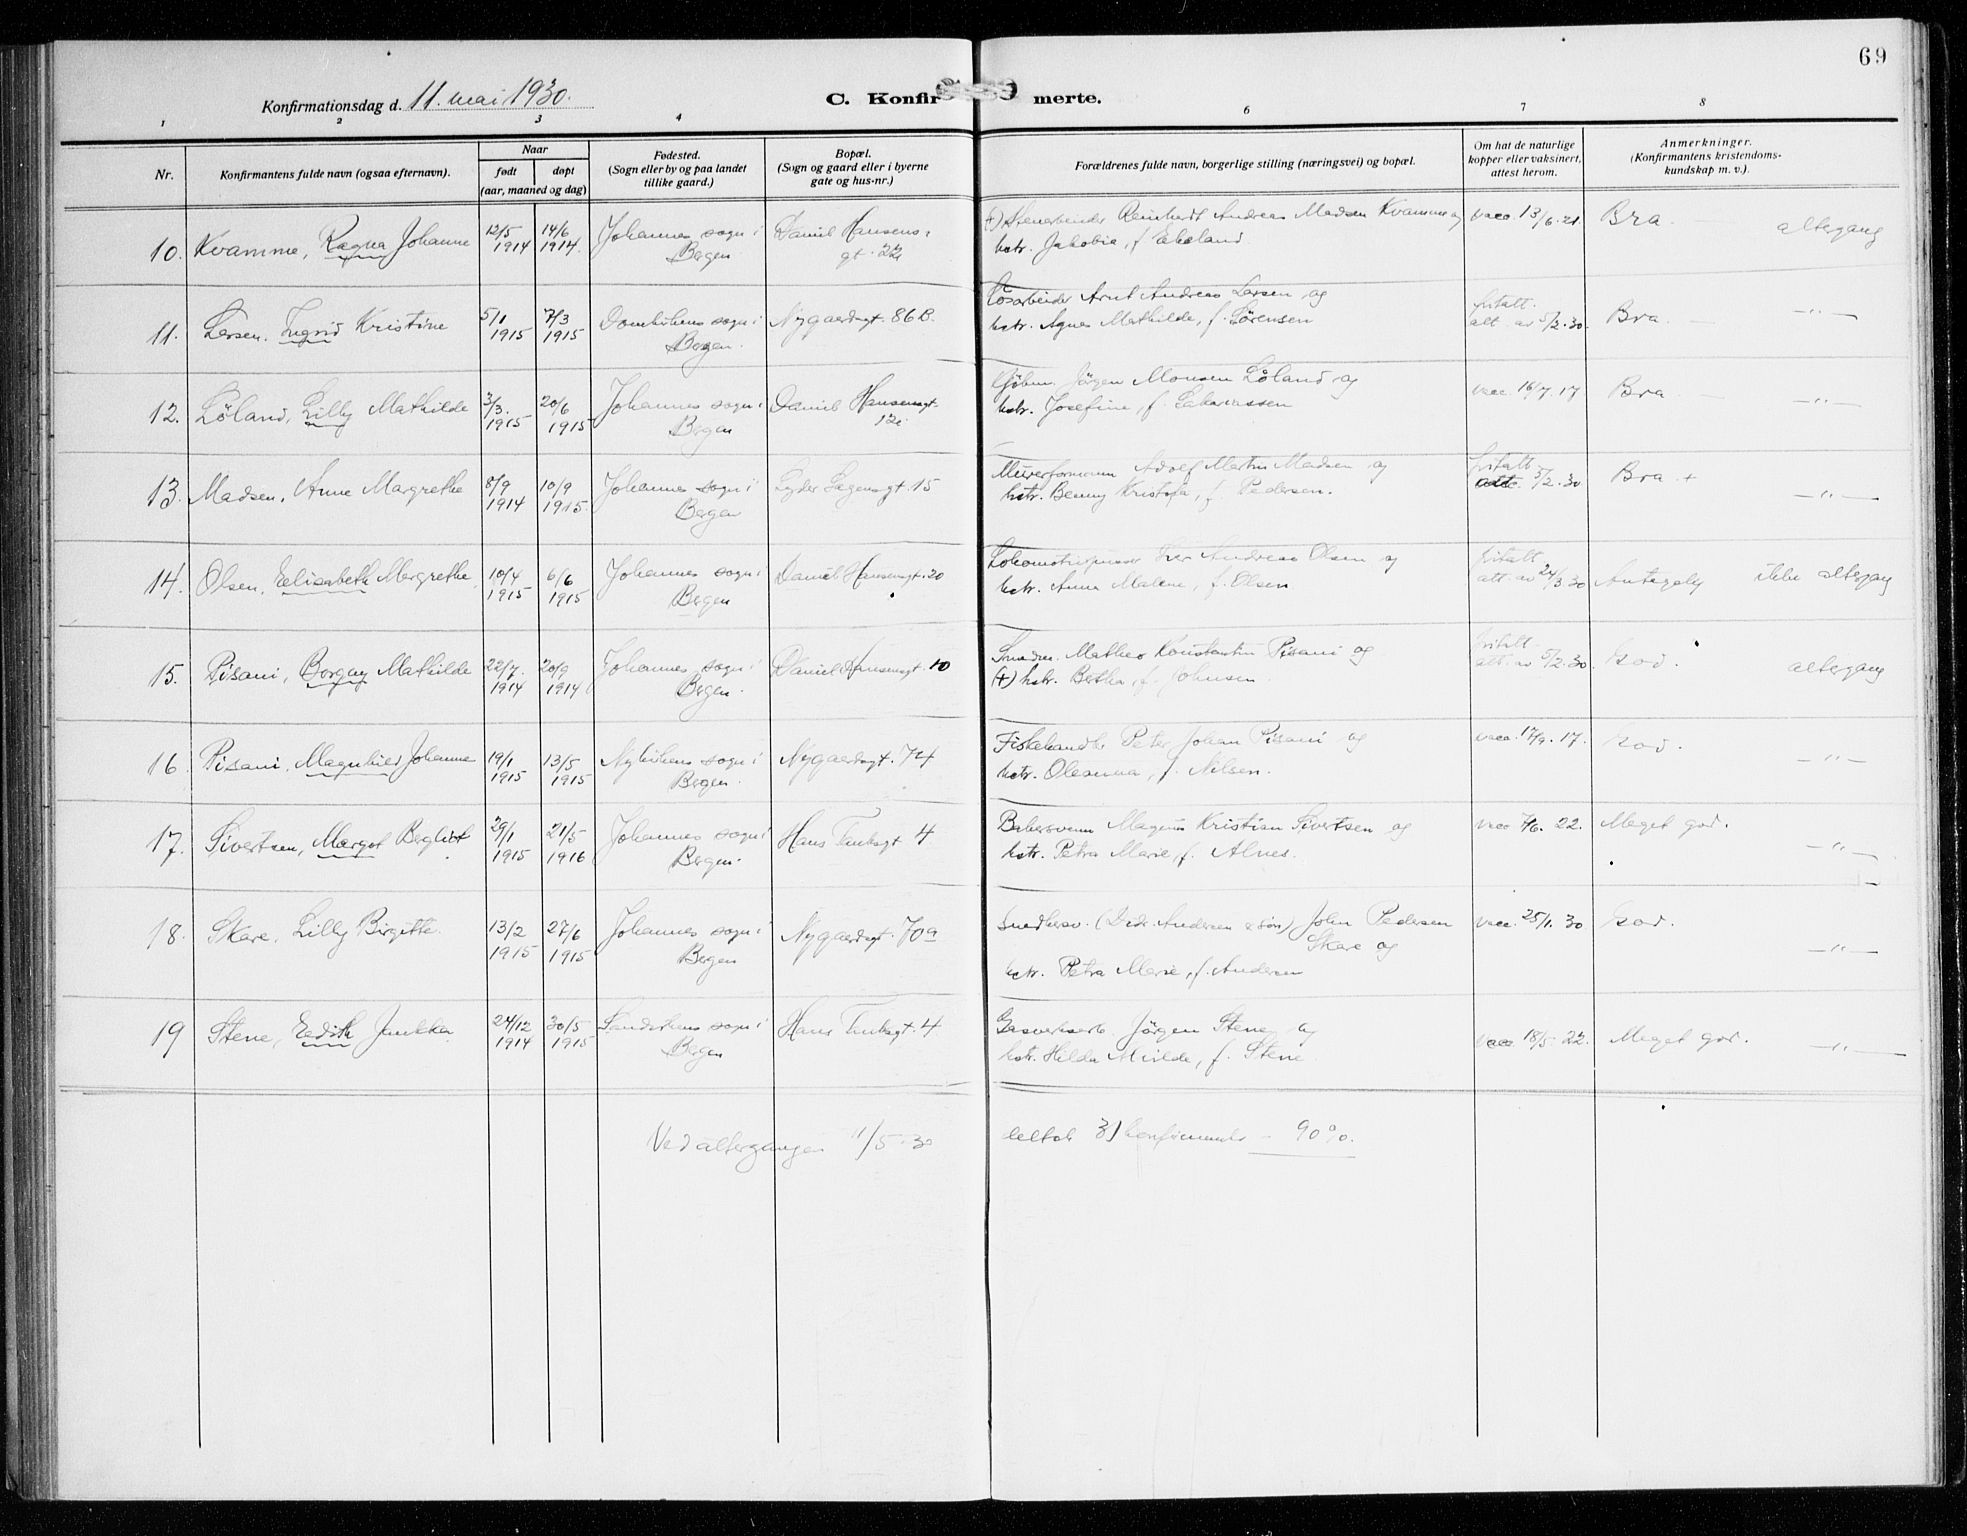 69
Konfirmationsdag d. 11. mai 1930.
C. Konfirmerte.
1 2 3 4 6 7 8
Nr.
Konfirmantens fulde navn (ogsaa efternavn).
Naar
født døpt
(aar, maaned og dag)
Fødested.
(Sogn eller by og paa landet
tillike gaard.)
Bopæl.
(Sogn og gaard eller i byerne
gate og hus-nr.)
Forældrenes fulde navn, borgerlige stilling (næringsvei) og bopæl.
Om hat de naturlige
kopper eller vaksinert,
attest herom.
Anmerkninger.
(Konfirmantens kristendoms-
kundskap m. v.).
10. Kvamme, Ragna Johanne 12/5 1914 14/6 1914. Johannes sogn i Bergen Daniel Hansens gt. 22
(+) Reinhardt Andreas Madsen Kvamme og
hstr. Jakobia, f. Ekeland. vacc. 13/6. 21. Bra. altergang
11. Larsen, Ingrid Kristine 5/1 1915 7/3 1915 Domkirkens sogn i Bergen. Nygaardsgt. 86B.
Løsarbeider Arnt Andreas Larsen og
hstr. Agnes Mathilde, f. Sørensen fritatt. att. av 5/2. 30. Bra. — " —
12. Löland, Lilly Mathilde 3/3. 1915 20/6 1915 Johannes sogn i Bergen Daniel Hansensgt. 12
Jörgen Monsen Löland og
hstr. Josefine, f. Sakariassen vacc. 16/7. 17 Bra — " —
13. Madsen, Anne Margrethe 8/9 1914 10/9 1915. Johannes sogn i Bergen Lyder Sagensgt. 15
Murerformann Adolf Martin Madsen og
hstr. Benny Kristofa, f. Pedersen. fritatt 5/2. 30 Bra + — " —
14. Olsen, Elisabeth Margrethe 10/4 1915 6/6 1915 Johannes sogn i Bergen Daniel Hansensgt. 20
Lokomotivpusser Andreas Olsen og
hstr. Anna Malene, f. Olsen fritatt att. av 24/3. 30 Antagelig ikke altergang
15. Pisani, Borgny Mathilde 22/7. 1914 20/9 1914 Johannes sogn i Bergen. Daniel Hansensgt. 10
Matheo Konstantin Pisani og
(+) hstr. Bertha, f. Johnsen. fritatt att. av 5/2. 30. God. altergang
16. Pisani, Magnhild Johanne 19/1 1915 13/5 1915 Nykirkens sogn i Bergen. Nygaardsgt. 74
Fiskehandler Peter Johan Pisani og
hstr. Oleanna, f. Nilsen. vacc. 17/9. 17. God. — " —
17. Sivertsen, Margot Bergliot 29/1 1915 21/5 1916 Johannes sogn i Bergen. Hans Tanksgt 4
Bakersvenn Magnus Kristian Sivertsen og
hstr. Petra Marie, f. Alnes. vacc 7/6. 22. Meget god. — " —
18. Skare, Lilly Birgitte. 13/2 1915 27/6 1915 Johannes sogn i Bergen Nygaardsgt. 70a
(Didr. Andersen & Søn) John Pedersen
Skare og
hstr. Petra Marie, f. Andersen vacc. 25/1. 30 God. — " —
19 Stene, Edith Junkka 24/12 1914 30/5 1915 Sandvikens sogn i Bergen Hans Tanksgt. 4
Gasverksarb. Jörgen Stene og
hstr. Hilda Milde, f. Stene vacc 18/5 22. Meget god. — " —
Ved altergangen 11/5. 30 deltok 31 konfirmanter – 90%.